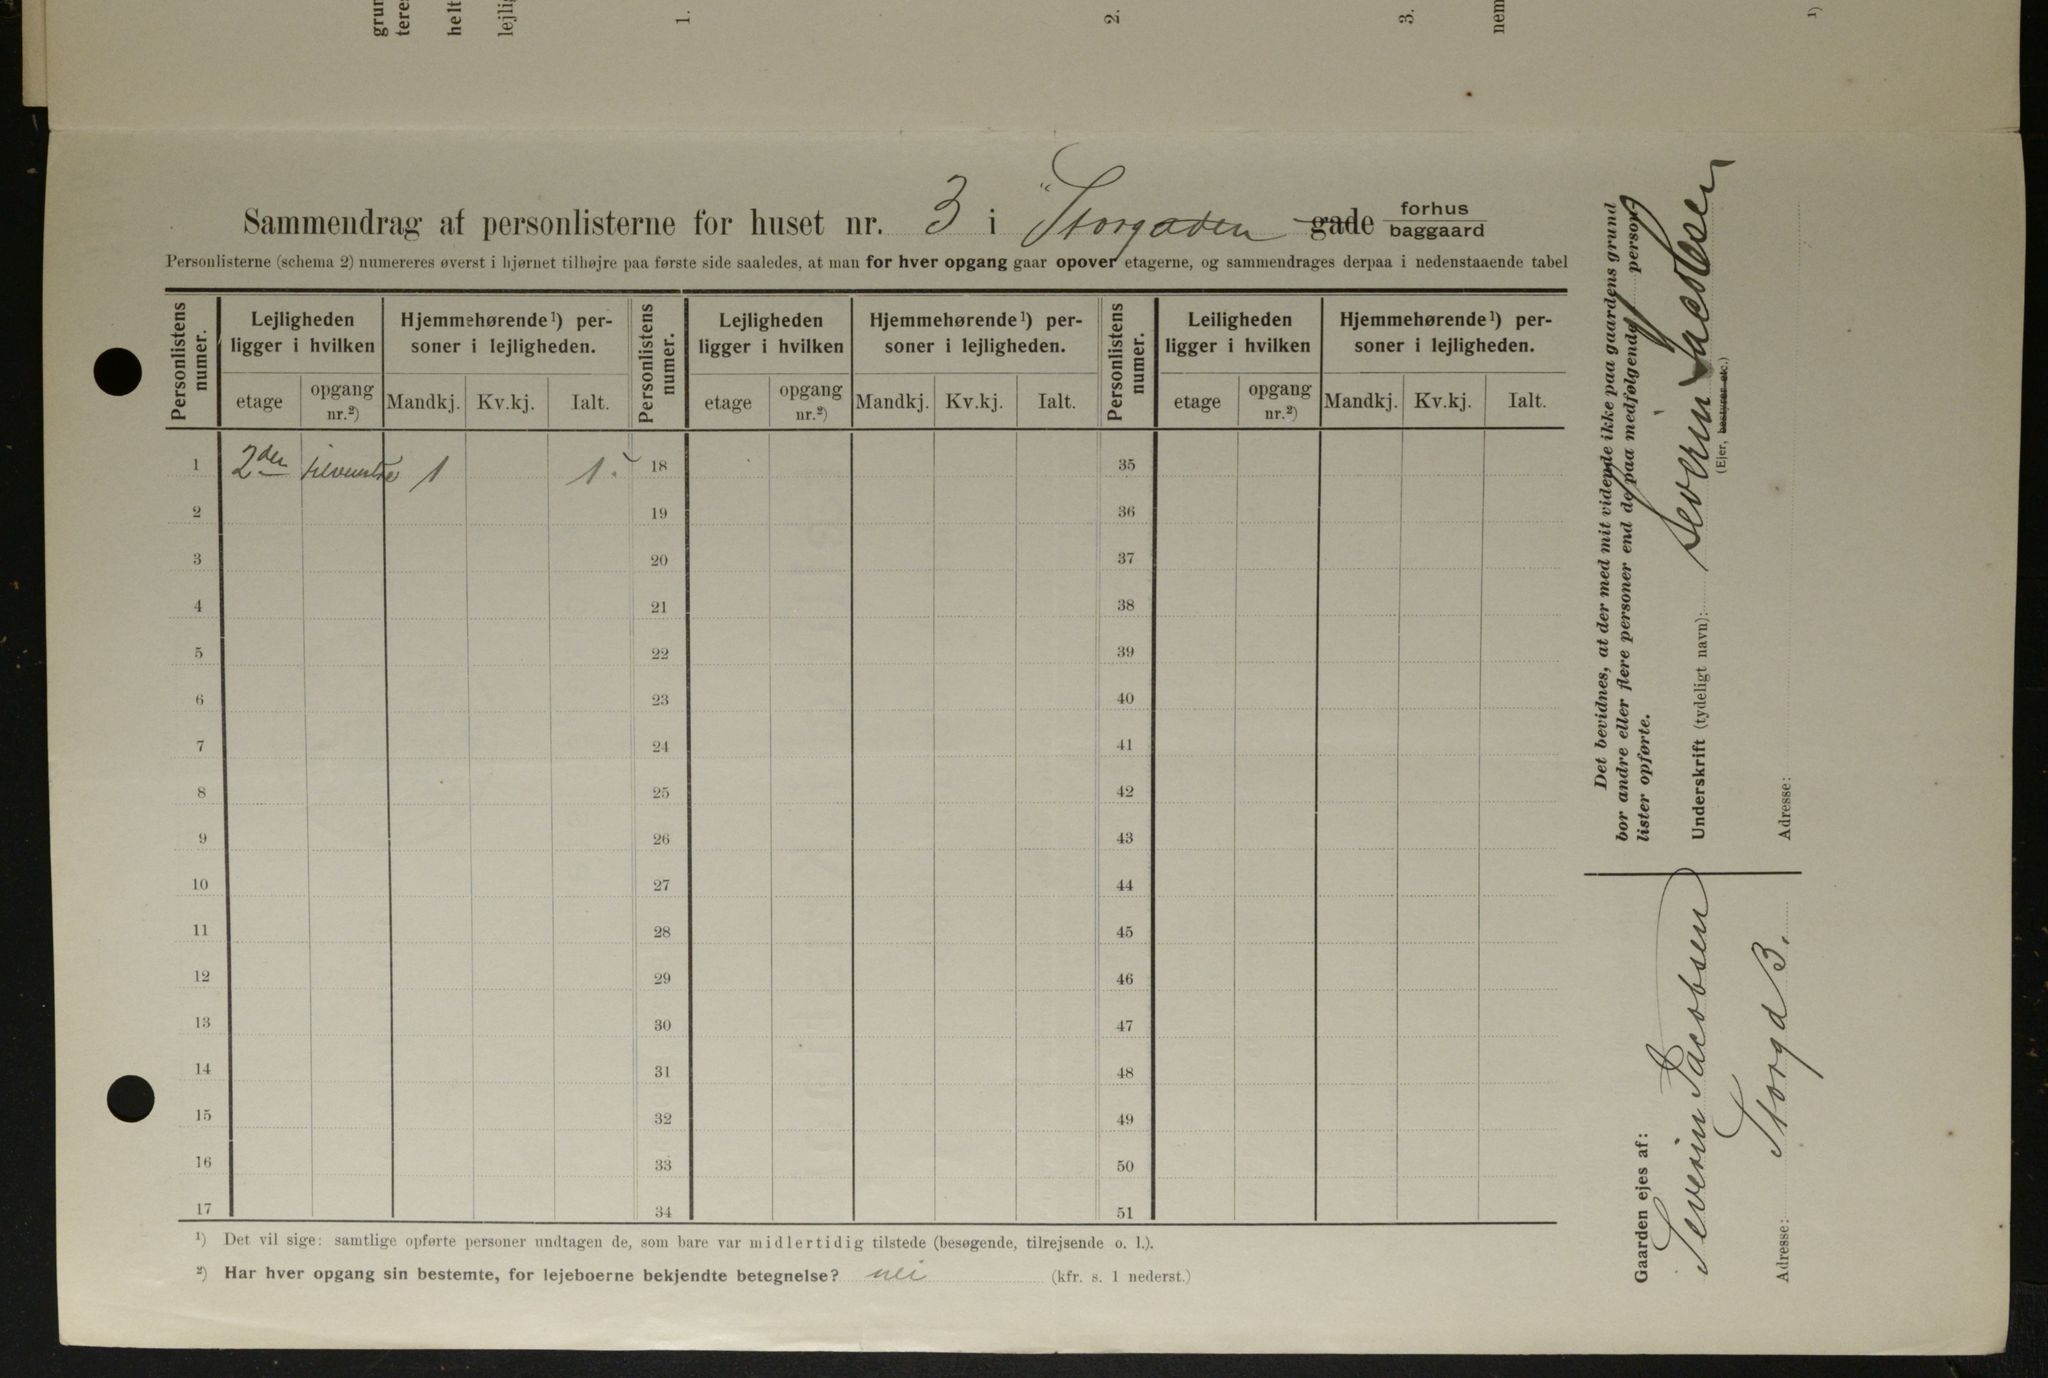 grun
teres
helt
lejlig
1.
2.
3.
nem
¹)
Sammendrag af personlisterne for huset nr. 3 i Storgaden gade forhus
baggaard
Personlisterne (schema 2) numereres øverst i hjørnet tilhøjre paa første side saaledes, at man for hver opgang gaar opover etagerne, og sammendrages derpaa i nedenstaaende tabel
Personlistens numer. Lejligheden ligger i hvilken Hjemmehørende¹) personer i lejligheden. Personlistens numer. Lejligheden ligger i hvilken Hjemmehørende¹) personer i lejligheden. Personlistens numer. Leiligheden ligger i hvilken Hjemmehørende¹) personer i lejligheden.
etage opgang nr.²) Mandkj. Kv.kj. Ialt. etage opgang nr.²) Mandkj. Kv.kj. Ialt. etage opgang nr.²) Mandkj. Kv.kj. Ialt.
1 2den 1 1. 18 35
2 19 36
3 20 37
4 21 38
5 22 39
6 23 40
7 24 41
8 25 42
9 26 43
10 27 44
11 28 45
12 29 46
13 30 47
14 31 48
15 32 49
16 33 50
17 34 51
¹) Det vil sige: samtlige opførte personer undtagen de, som bare var midlertidig tilstede (besøgende, tilrejsende o. l.).
²) Har hver opgang sin bestemte, for lejeboerne bekjendte betegnelse? nei (kfr. s. 1 nederst.)
Det bevidnes, at der med mit vidende ikke paa gaardens grund
bor andre eller flere personer end de paa medfølgende 1 person-
lister opførte.
Underskrift (tydeligt navn): Severin Jacobsen
(Ejer, bestyrer etc.)
Adresse:
Gaarden ejes af:
Severin Jacobsen
Adresse: Storgd 3.